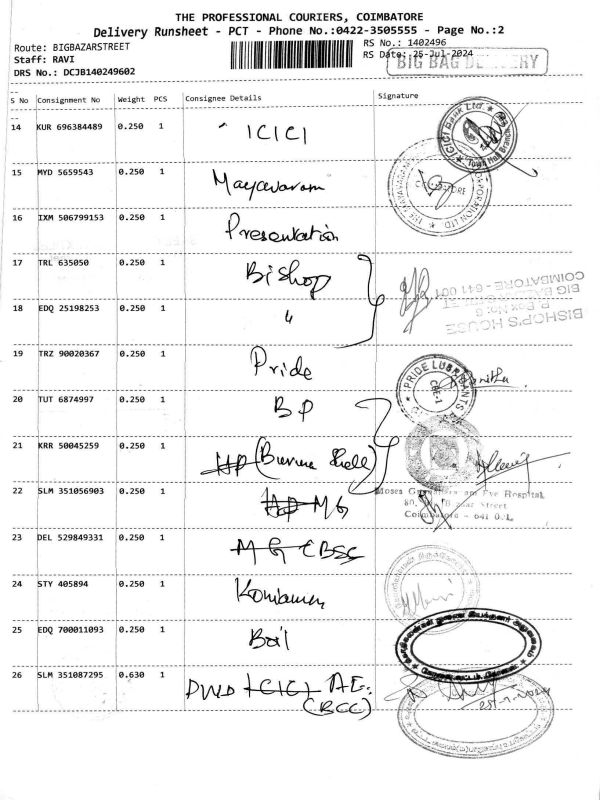 THE PROFESSIONAL COURIERS, COIMBATORE
Delivery Runsheet - PCT - Phone No.:0422-3505555 - Page No.:2
Route: BIGBAZARSTREET
RS No.: 1402496
Staff: RAVI
RS Date: 25-Jul-2024
DRS No.: DCJB140249602
BIG BAG DELIVERY
S No Consignment No Weight PCS Consignee Details Signature
14 KUR 696384489 0.250 1 ICICI
ICICI Bank Ltd. Town Hall Branch
15 MYD 5659543 0.250 1 Mayavaram
COIMBATORE
16 IXM 506799153 0.250 1 Presentation
17 TRL 635050 0.250 1 Bishop
BISHOP'S HOUSE
COIMBATORE - 641 001
18 EDQ 25198253 0.250 1 "
19 TRZ 90020367 0.250 1 Pride
PRIDE LUBRICANTS
CBE-1
20 TUT 6874997 0.250 1 BP
21 KRR 50045259 0.250 1 HP (Burma Shell)
22 SLM 351056903 0.250 1 HP MG
Moses Eye Hospital,
80, Street
Coimbatore - 641 001.
23 DEL 529849331 0.250 1 MG CBSE
24 STY 405894 0.250 1
25 EDQ 700011093 0.250 1
26 SLM 351087295 0.630 1 PWD ICICI AE.
(BCC)